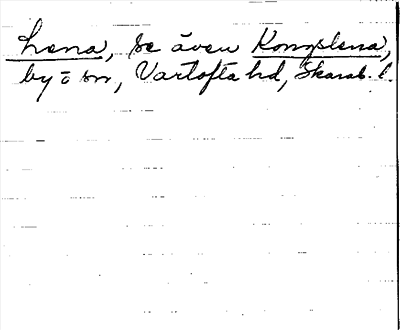 Lena, se även Kongslena,
by o sn, Vartofta hd, Skarab. l.